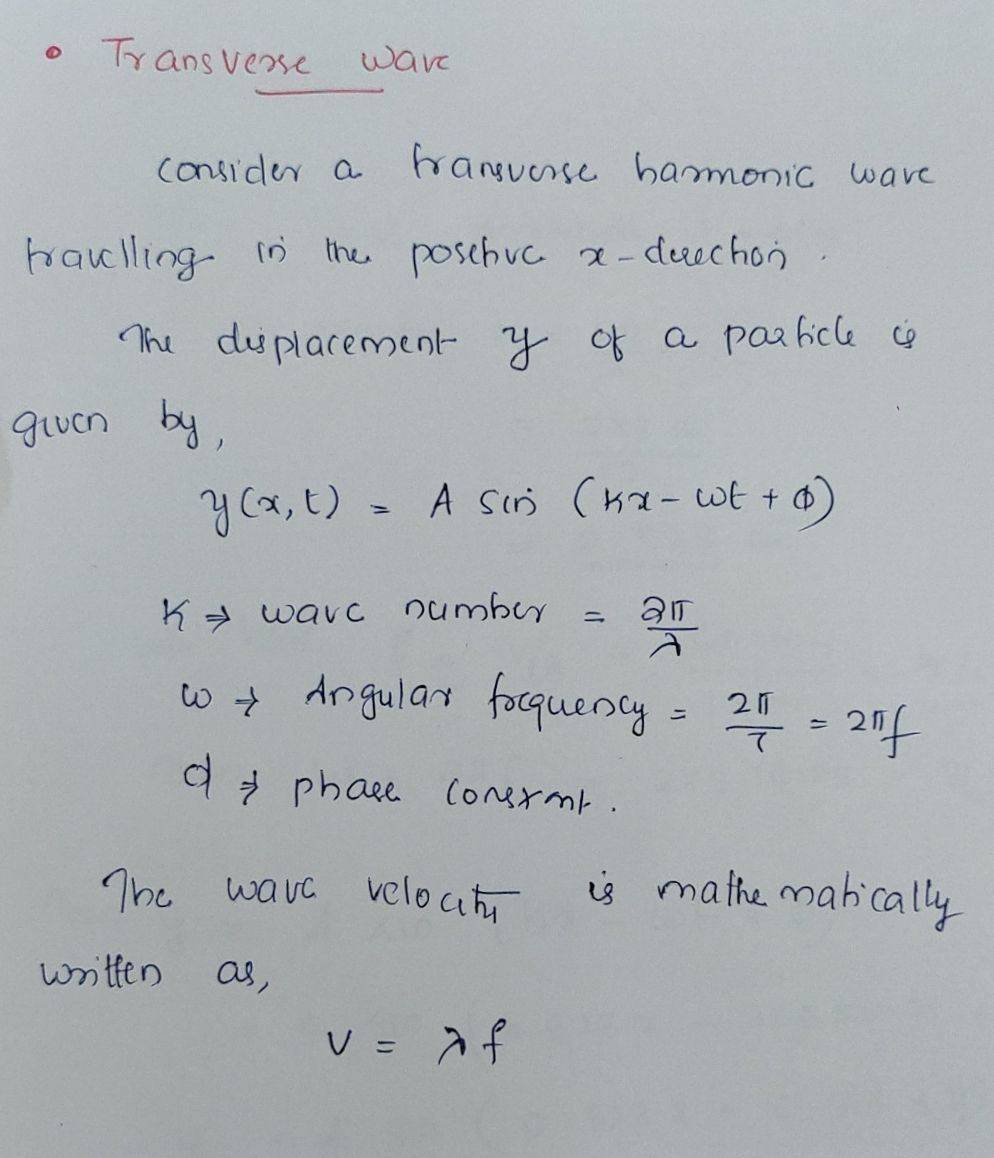 • Transverse wave
consider a transverse harmonic wave
travelling in the positive x-direction.
The displacement y of a particle is
given by,
y(x,t) = A sin (kx - ωt + φ)
K ⇒ wave number = 2π/λ
ω ⇒ Angular frequency = 2π/T = 2πf
ϕ ⇒ phase constant.
The wave velocity is mathematically
written as,
v = λf